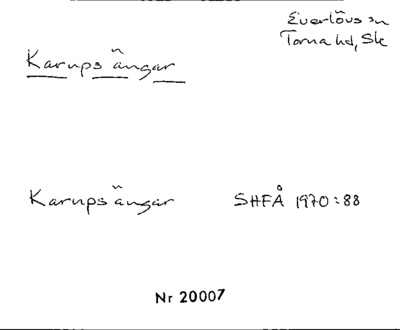 Everlövs sn
Torna hd, Sk
Karups ängar
Karups ängar SHFÅ 1970:88
Nr 20007